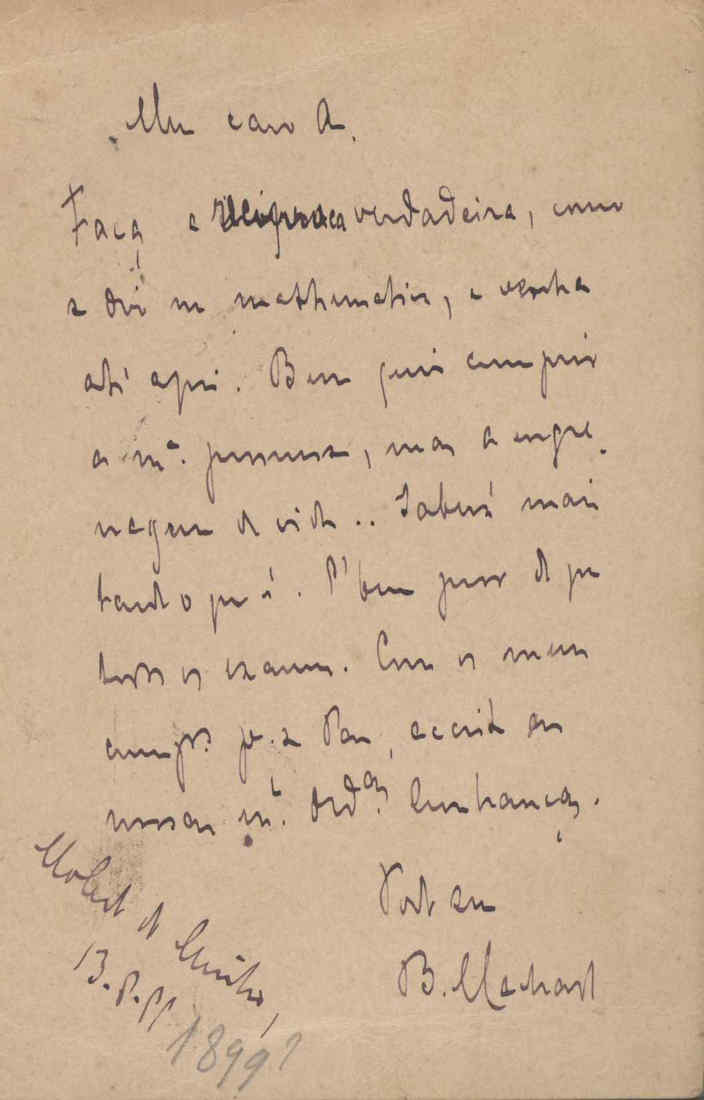 Meu caro A.
Faça a reciproca verdadeira, como
a diz na mathematica, e venha
até aqui. Bem quis cumprir
a mª. promessa, mas a engre-
nagem da vida.. Saberá mais
tarde o que é. É bem
os exames. Com os meus
cumptos. pª. a Pau, acceite as
nossas mt. ordas. lembranças.
Todo seu
B. Machado
13.8.99
1899?